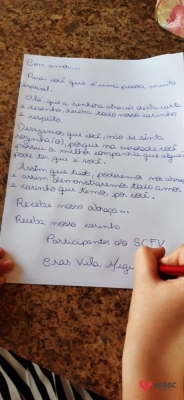 Com amor...
Para você que é uma pessoa muito
especial.
Olá, que a senhora através desta carta
e desenho, receba todo nosso carinho
e respeito.
Desejamos que você, não se sinta
sozinho(a), porque na verdade você
possue a melhor companhia que alguém
pode ter, que é você.
Assim que tudo, podermos nos
e assim demonstraremos todo amor
e carinho que temos por você.
Receba nosso abraço...
Receba nosso carinho
Participantes do SCFV
Cras Vila